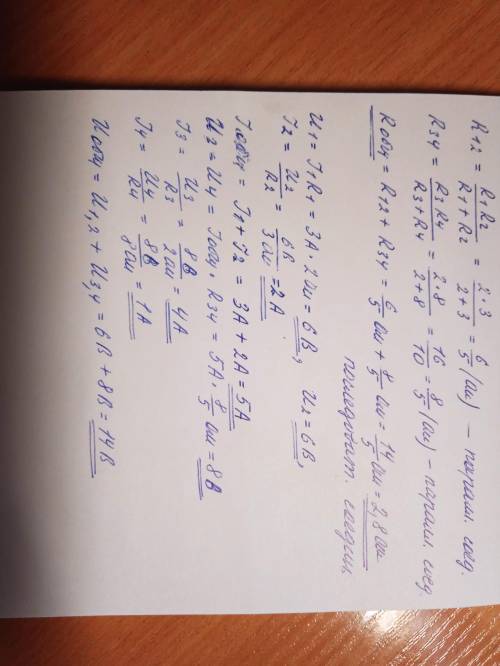 R12 = R1R2 / R1+R2 = 2·3 / 2+3 = 6/5 (Ом) – паралл. соед.
R34 = R3R4 / R3+R4 = 2·8 / 2+8 = 16/10 = 8/5 (Ом) – паралл. соед.
Rобщ = R12 + R34 = 6/5 Ом + 8/5 Ом = 14/5 Ом = 2,8 Ом
последоват. соедин.
U1 = I1R1 = 3А · 2 Ом = 6В, U2 = 6В,
I2 = U2 / R2 = 6В / 3 Ом = 2А
Iобщ = I1 + I2 = 3А + 2А = 5А
U3 = U4 = Iобщ · R34 = 5А · 8/5 Ом = 8В
I3 = U3 / R3 = 8В / 2 Ом = 4А
I4 = U4 / R4 = 8В / 8 Ом = 1А
Uобщ = U1,2 + U3,4 = 6В + 8В = 14В